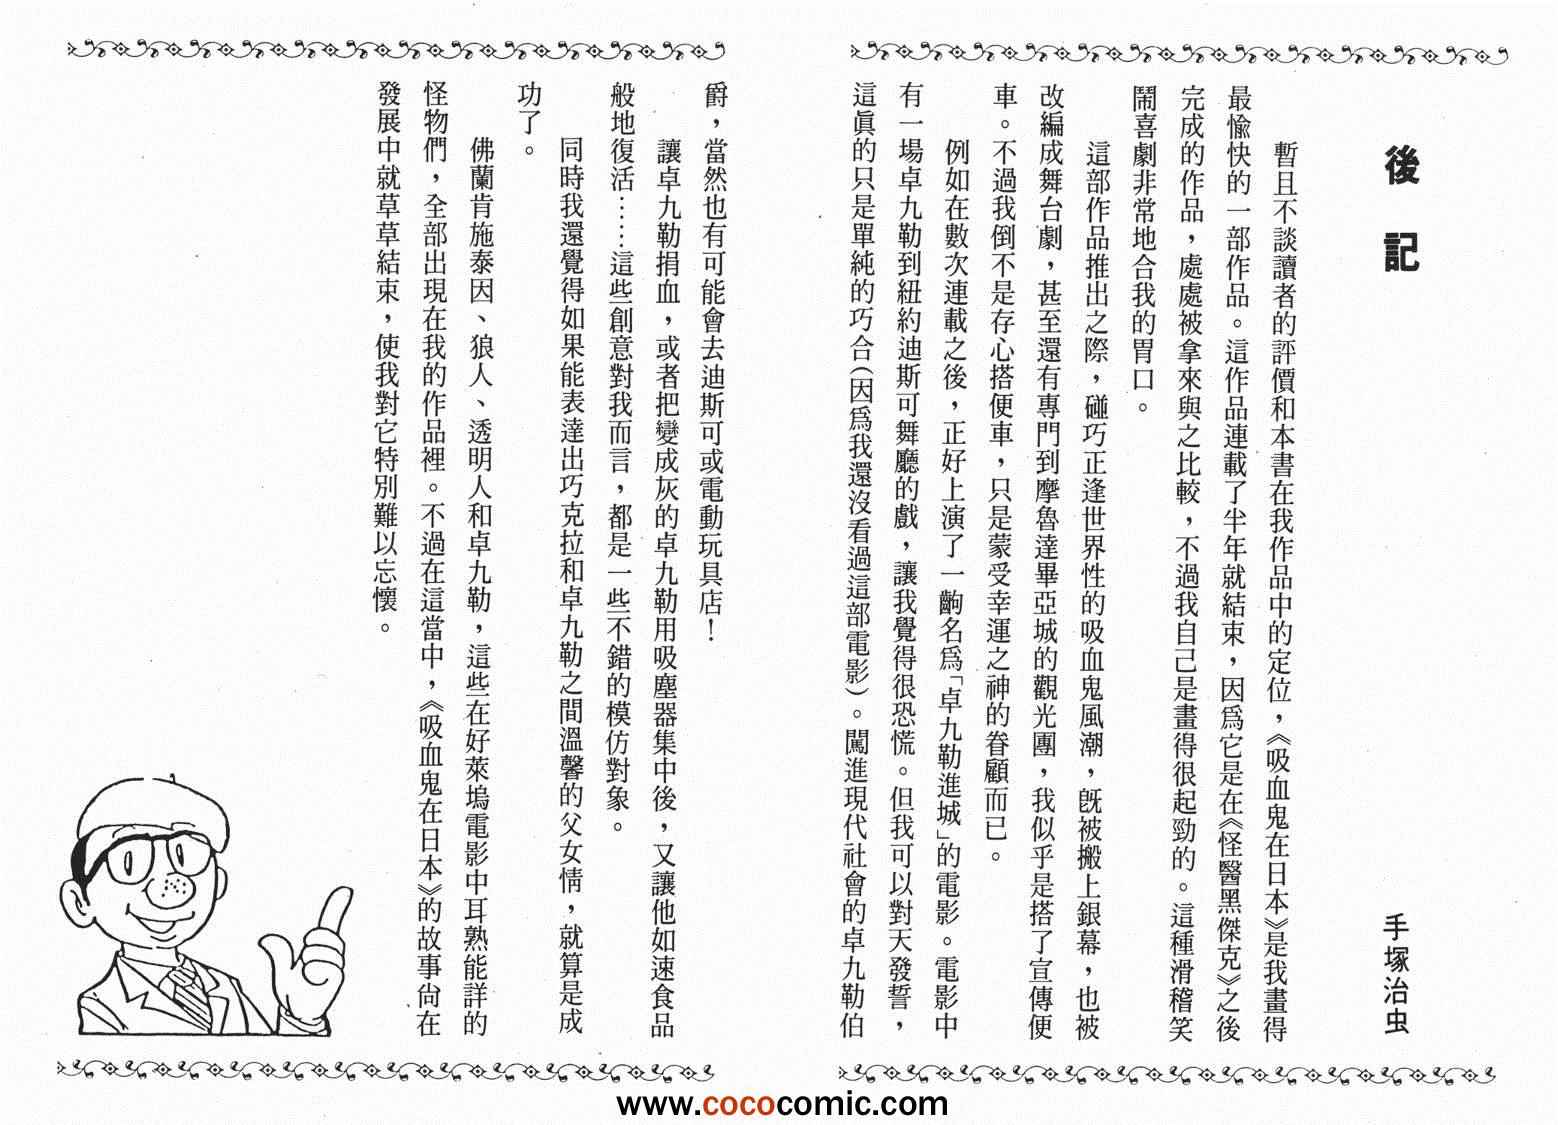 後記
手塚治虫
暫且不談讀者的評價和本書在我作品中的定位，《吸血鬼在日本》是我畫得
最愉快的一部作品。這作品連載了半年就結束，因爲它是在《怪醫黑傑克》之後
完成的作品，處處被拿來與之比較，不過我自己是畫得很起勁的。這種滑稽笑
鬧喜劇非常地合我的胃口。
這部作品推出之際，碰巧正逢世界性的吸血鬼風潮，旣被搬上銀幕，也被
改編成舞台劇，甚至還有專門到摩魯達畢亞城的觀光團，我似乎是搭了宣傳便
車。不過我倒不是存心搭便車，只是蒙受幸運之神的眷顧而已。
例如在數次連載之後，正好上演了一齣名爲「卓九勒進城」的電影。電影中
有一場卓九勒到紐約迪斯可舞廳的戲，讓我覺得很恐慌。但我可以對天發誓，
這眞的只是單純的巧合（因爲我還沒看過這部電影）。闖進現代社會的卓九勒伯
爵，當然也有可能會去迪斯可或電動玩具店！
讓卓九勒捐血，或者把變成灰的卓九勒用吸塵器集中後，又讓他如速食品
般地復活……這些創意對我而言，都是一些不錯的模仿對象。
同時我還覺得如果能表達出巧克拉和卓九勒之間溫馨的父女情，就算是成
功了。
佛蘭肯施泰因、狼人、透明人和卓九勒，這些在好萊塢電影中耳熟能詳的
怪物們，全部出現在我的作品裡。不過在這當中，《吸血鬼在日本》的故事尙在
發展中就草草結束，使我對它特別難以忘懷。
www.cococomic.com